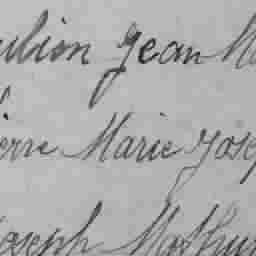 ulien Jean M
ierre Marie Jose
oseph Mathu